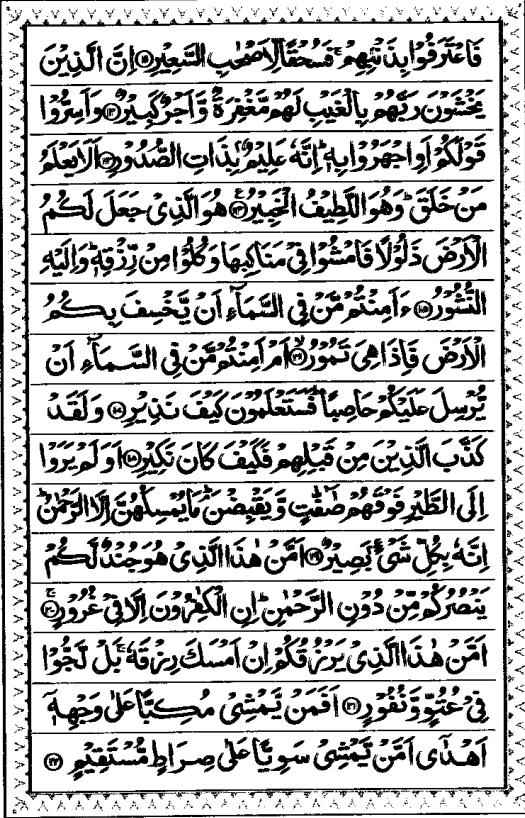 فَاعْتَرَفُوْا بِذَنْۢبِهِمْ ۚ فَسُحْقًا لِّاَصْحٰبِ السَّعِيْرِ ﴿۱۱﴾ اِنَّ الَّذِيْنَ
يَخْشَوْنَ رَبَّهُمْ بِالْغَيْبِ لَهُمْ مَّغْفِرَةٌ وَّاَجْرٌ كَبِيْرٌ ﴿۱۲﴾ وَاَسِرُّوْا
قَوْلَكُمْ اَوِ اجْهَرُوْا بِهٖ ؕ اِنَّهٗ عَلِيْمٌۢ بِذَاتِ الصُّدُوْرِ ﴿۱۳﴾ اَلَا يَعْلَمُ
مَنْ خَلَقَ ؕ وَهُوَ اللَّطِيْفُ الْخَبِيْرُ ﴿۱۴﴾ هُوَ الَّذِيْ جَعَلَ لَكُمُ
الْاَرْضَ ذَلُوْلًا فَامْشُوْا فِيْ مَنَاكِبِهَا وَكُلُوْا مِنْ رِّزْقِهٖ ؕ وَاِلَيْهِ
النُّشُوْرُ ﴿۱۵﴾ ءَاَمِنْتُمْ مَّنْ فِي السَّمَآءِ اَنْ يَّخْسِفَ بِكُمُ
الْاَرْضَ فَاِذَا هِيَ تَمُوْرُ ﴿۱۶﴾ اَمْ اَمِنْتُمْ مَّنْ فِي السَّمَآءِ اَنْ
يُّرْسِلَ عَلَيْكُمْ حَاصِبًا ؕ فَسَتَعْلَمُوْنَ كَيْفَ نَذِيْرِ ﴿۱۷﴾ وَلَقَدْ
كَذَّبَ الَّذِيْنَ مِنْ قَبْلِهِمْ فَكَيْفَ كَانَ نَكِيْرِ ﴿۱۸﴾ اَوَلَمْ يَرَوْا
اِلَى الطَّيْرِ فَوْقَهُمْ صٰٓفّٰتٍ وَّيَقْبِضْنَ ؕۘ مَا يُمْسِكُهُنَّ اِلَّا الرَّحْمٰنُ ؕ
اِنَّهٗ بِكُلِّ شَيْءٍۢ بَصِيْرٌ ﴿۱۹﴾ اَمَّنْ هٰذَا الَّذِيْ هُوَ جُنْدٌ لَّكُمْ
يَنْصُرُكُمْ مِّنْ دُوْنِ الرَّحْمٰنِ ؕ اِنِ الْكٰفِرُوْنَ اِلَّا فِيْ غُرُوْرٍ ﴿۲۰﴾ ۚ
اَمَّنْ هٰذَا الَّذِيْ يَرْزُقُكُمْ اِنْ اَمْسَكَ رِزْقَهٗ ۚ بَلْ لَّجُّوْا
فِيْ عُتُوٍّ وَّنُفُوْرٍ ﴿۲۱﴾ اَفَمَنْ يَّمْشِيْ مُكِبًّا عَلٰى وَجْهِهٖٓ
اَهْدٰٓى اَمَّنْ يَّمْشِيْ سَوِيًّا عَلٰى صِرَاطٍ مُّسْتَقِيْمٍ ﴿۲۲﴾